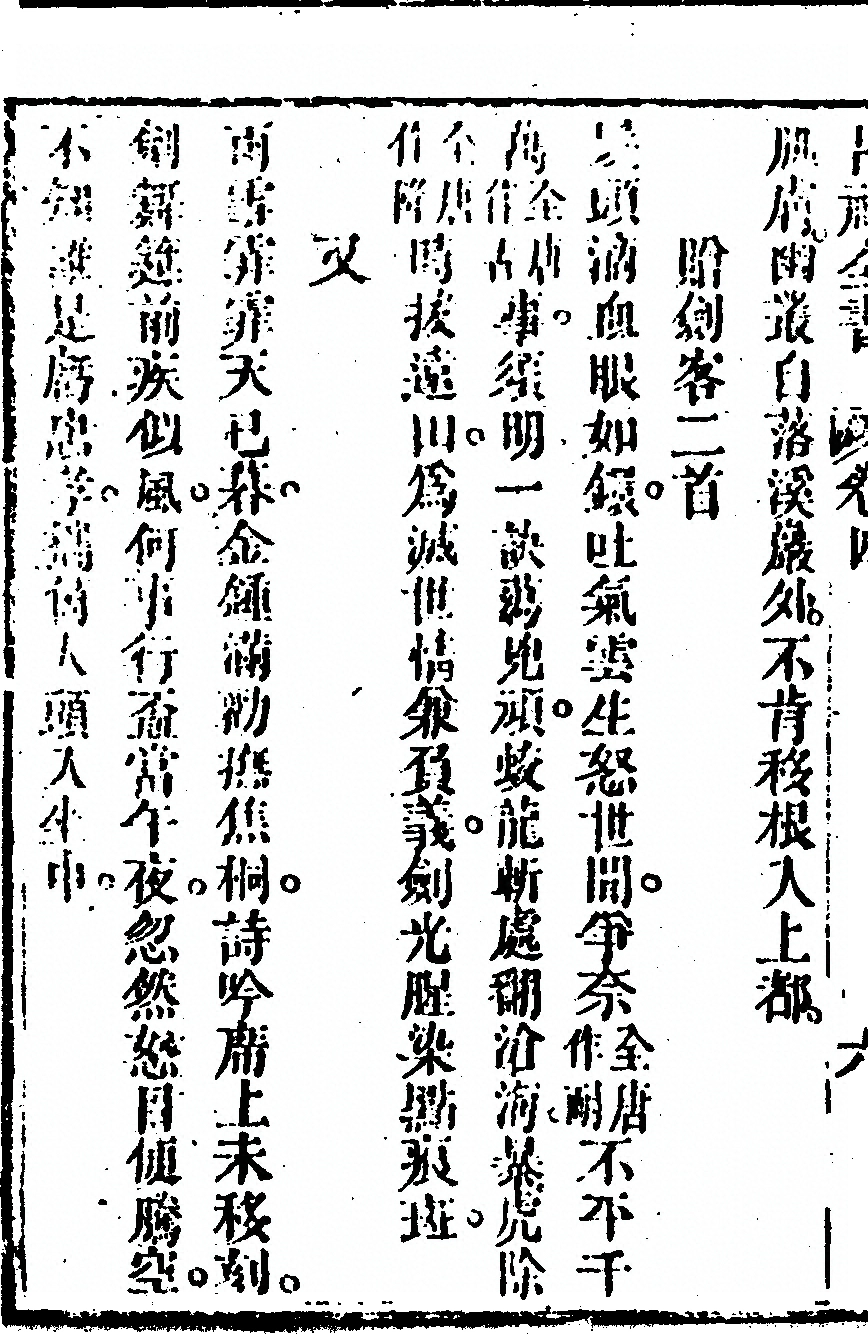 肌膚幽叢自落溪巖外。不肯移根入上都。
贈劍客二首
頭滴血眼如鐶。吐氣雲生怒世間。爭奈全唐作耐不平千
萬全唐作古事。須明一訣蕩兇頑。蛟龍斬處翻滄海。暴虎除
全唐作時拔遠山。為滅世情兼負義。劍光腥染點痕斑。
又
雨雪霏霏天已暮。金鍾滿勸撫焦桐。詩吟席上未移刻。
劍舞筵前疾似風。何事行盃當午夜。忽然怒目便騰空。
不知誰是虧忠孝。攜個人頭入坐中。